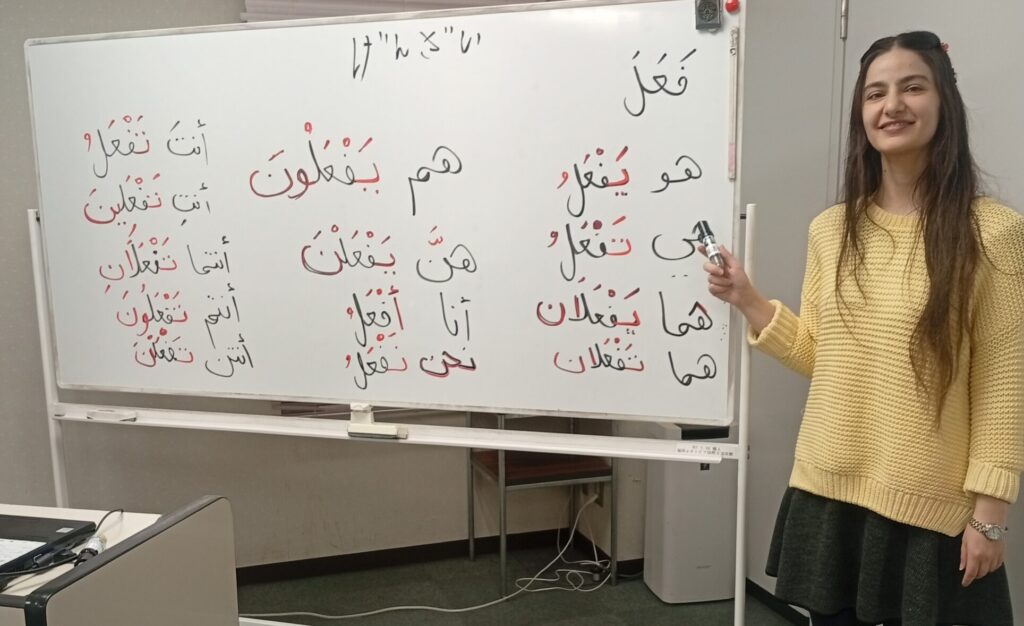 فَعَلَ
هو يَفْعَلُ
هي تَفْعَلُ
هما يَفْعَلَان
هما تَفْعَلان
هم يَفْعَلُونَ
هنَّ يَفْعَلْنَ
أنا أَفْعَلُ
نحن نَفْعَلُ
أنتَ تَفْعَلُ
أنتِ تَفْعَلِينَ
أنتما تَفْعَلَانِ
أنتم تَفْعَلُونَ
أنتن تَفْعَلْنَ